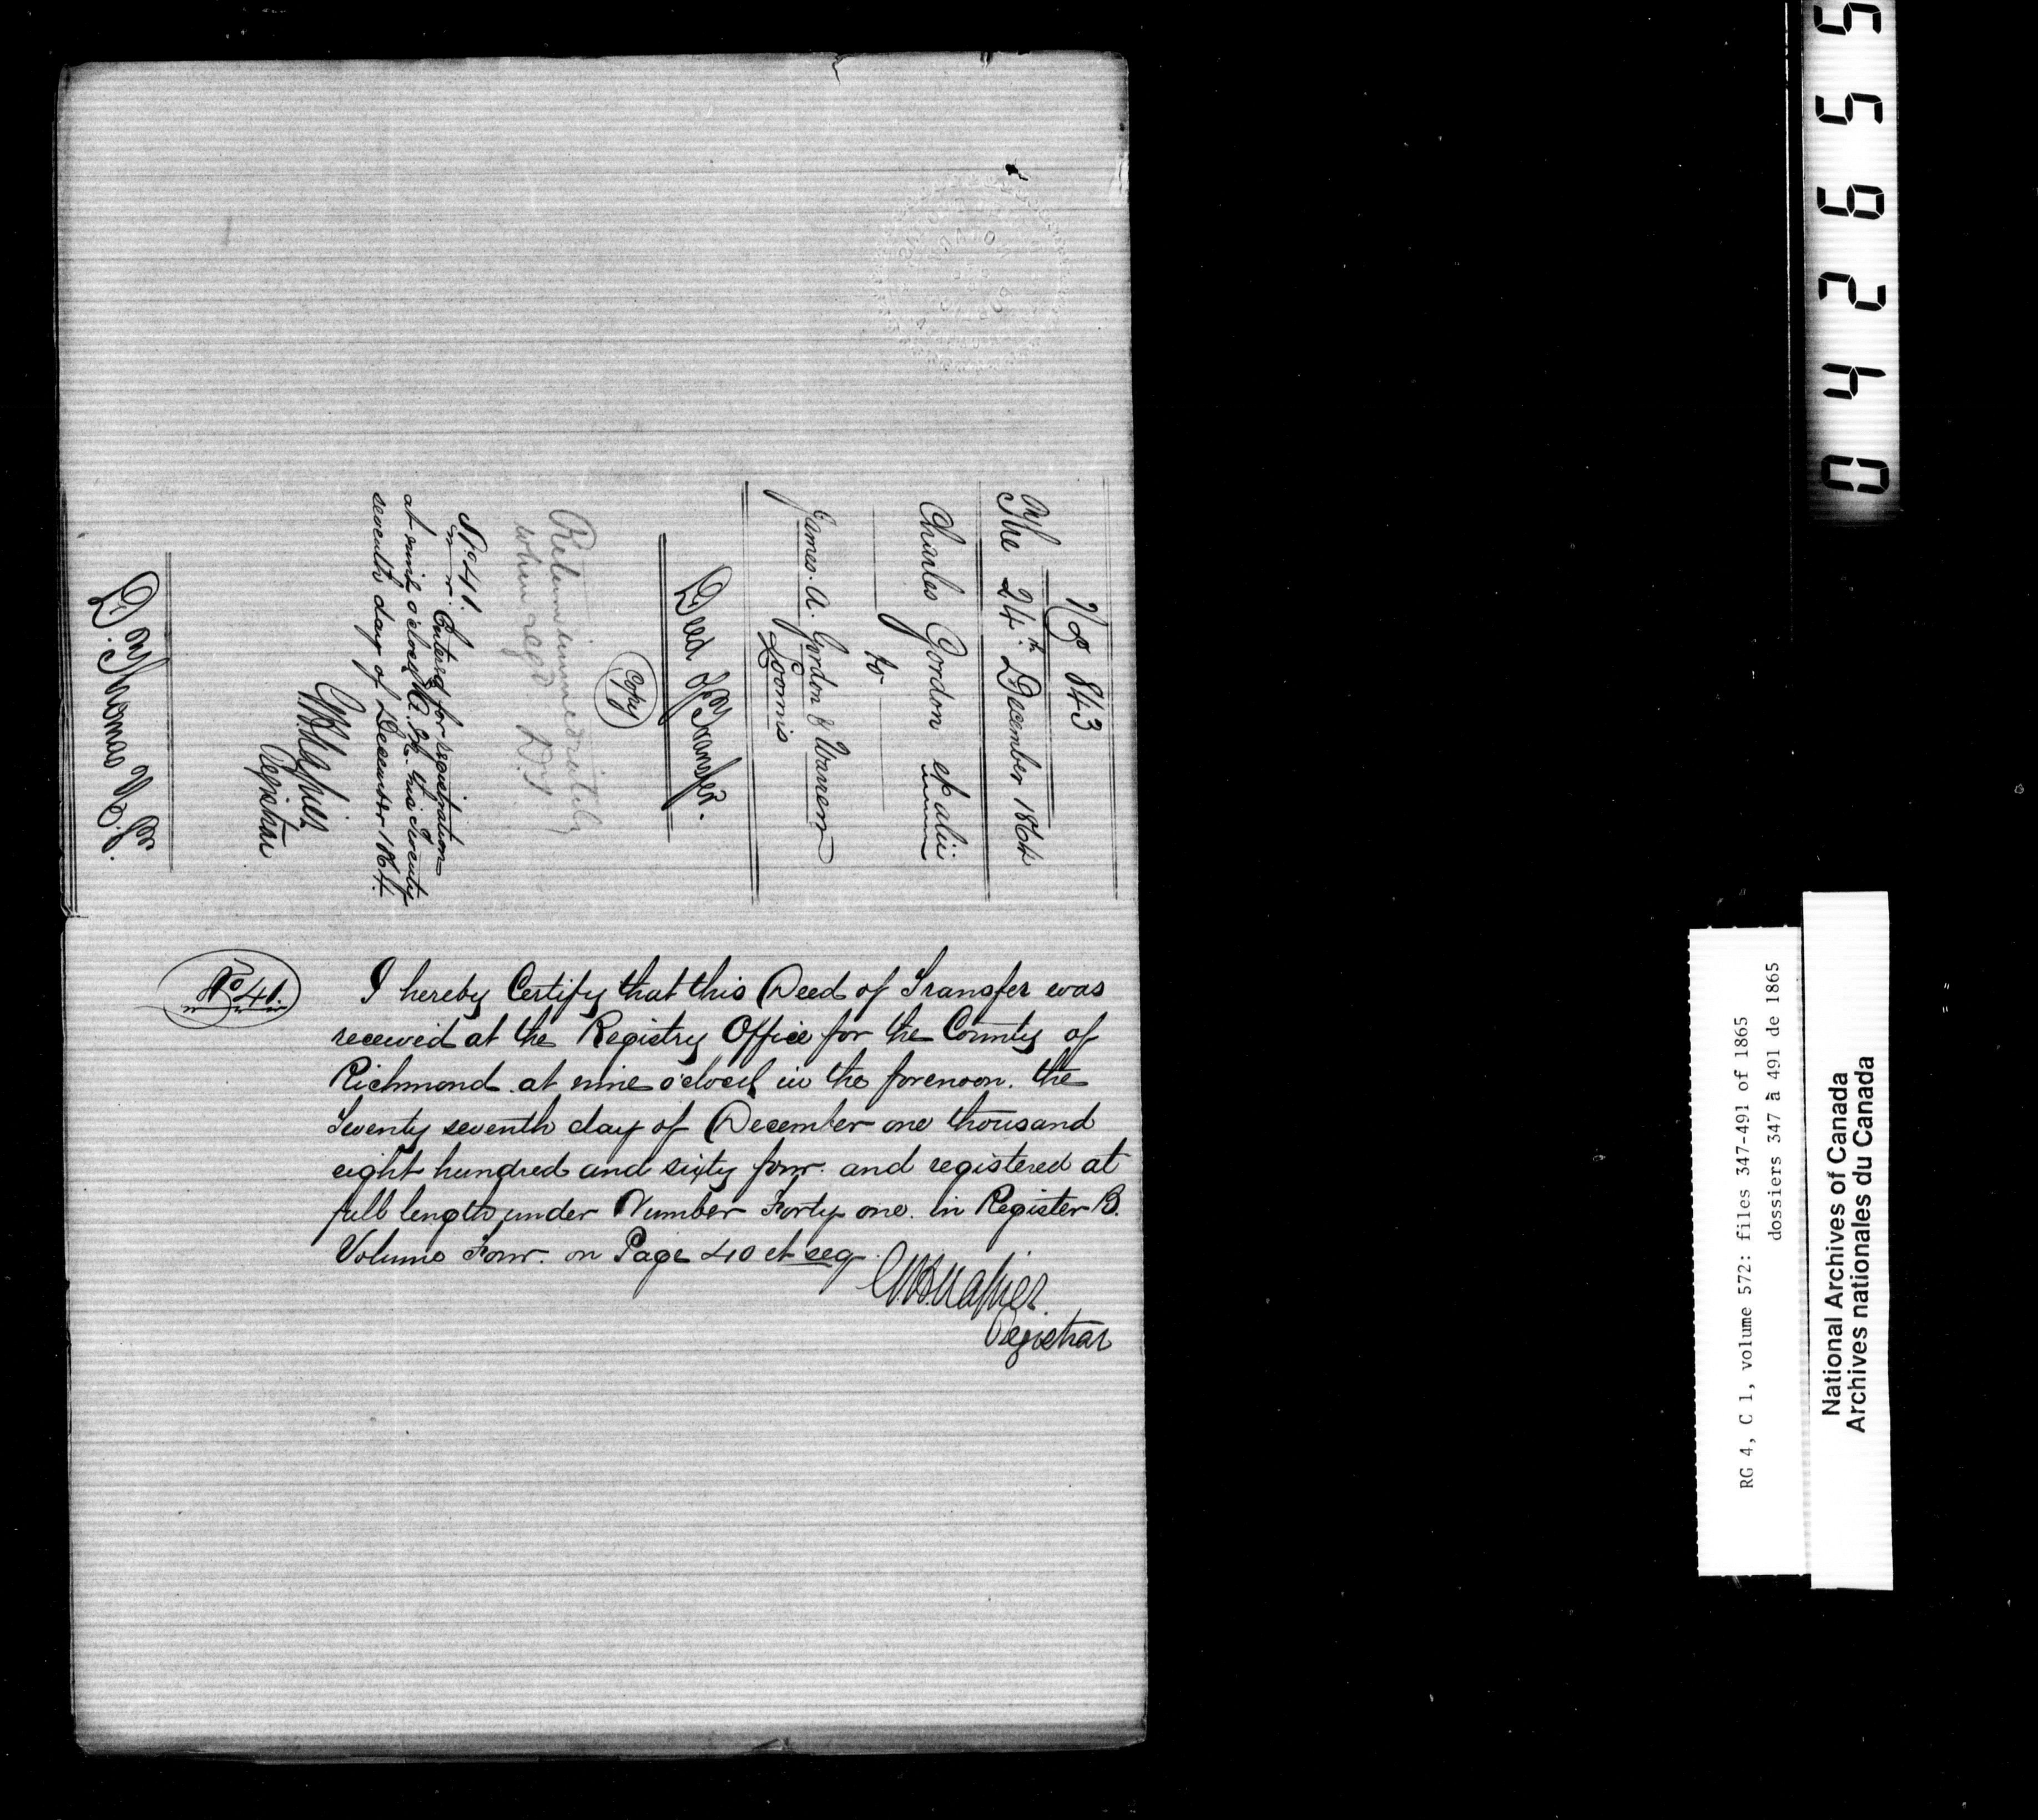 No 843
The 24th December 1864
Charles Gordon et alii
to
James A. Gordon & Warren
Loomis
Deed of Transfer.
Copy
Return immediately
when regd D.T
No 41. Entered for registration
at nine o'clock A.M. this Twenty
seventh day of December 1864.
Registrar
D. Thomas N.P.
No 41.
I hereby Certify that this Deed of Transfer was
received at the Registry Office for the County of
Richmond at nine o'clock in the forenoon. the
Twenty seventh day of December one thousand
eight hundred and sixty four. and registered at
full length under Number Forty one. in Register B.
Volume Four. on Page 40 et seq.
Registrar
NOTARY
PUBLIC
042655
RG 4, C 1, volume 572: files 347-491 of 1865
dossiers 347 à 491 de 1865
National Archives of Canada
Archives nationales du Canada